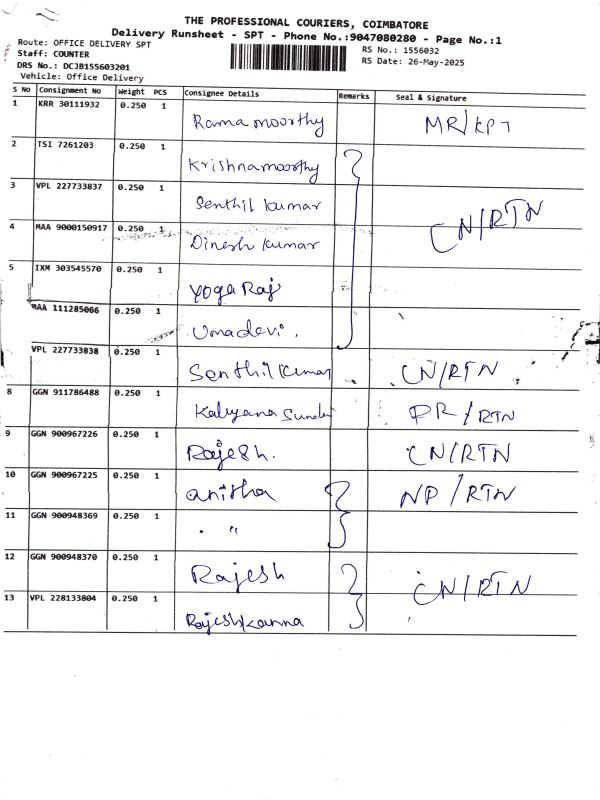 THE PROFESSIONAL COURIERS, COIMBATORE
Delivery Runsheet - SPT - Phone No.:9047080280 - Page No.:1
Route: OFFICE DELIVERY SPT
Staff: COUNTER
DRS No.: DCJB155603201
Vehicle: Office Delivery
RS No.: 1556032
RS Date: 26-May-2025
S No Consignment No Weight PCS Consignee Details Remarks Seal & Signature
1 KRR 30111932 0.250 1 Ramamoorthy MR/KPT
2 TSI 7261203 0.250 1 Krishnamoorthy
3 VPL 227733837 0.250 1 Senthil Kumar CN/RTN
4 MAA 9000150917 0.250 1 Dinesh Kumar
5 IXM 303545570 0.250 1 Yoga Raj
MAA 111285066 0.250 1 Umadevi.
VPL 227733838 0.250 1 Senthil Kumar CN/RTN
8 GGN 911786488 0.250 1 Kalyana Sunder /RTN
9 GGN 900967226 0.250 1 Rajesh. CN/RTN
10 GGN 900967225 0.250 1 anitha NP/RTN
11 GGN 900948369 0.250 1 . "
12 GGN 900948370 0.250 1 Rajesh CN/RTN
13 VPL 228133804 0.250 1 Rajeshkanna